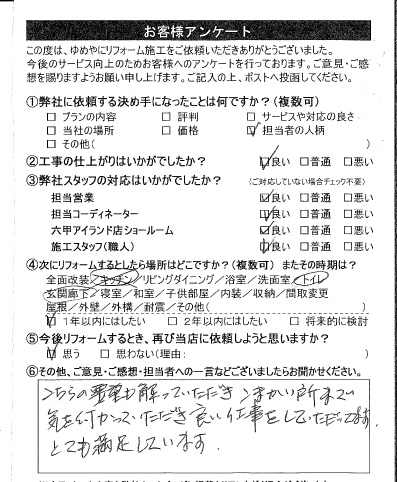 お客様アンケート
この度は、ゆめやにリフォーム施工をご依頼いただきありがとうございました。
今後のサービス向上のためお客様へのアンケートを行っております。ご意見・ご感
想を賜りますようお願い申し上げます。ご記入の上、ポストへ投函してください。
①弊社に依頼する決め手になったことは何ですか？（複数可）
□ プランの内容 □ 評判 □ サービスや対応の良さ
□ 当社の場所 □ 価格 ☑ 担当者の人柄
□ その他（ ）
②工事の仕上がりはいかがでしたか？ ☑良い □普通 □悪い
③弊社スタッフの対応はいかがでしたか？ （ご対応していない場合チェック不要）
担当営業 ☑良い □普通 □悪い
担当コーディネーター ☑良い □普通 □悪い
六甲アイランド店ショールーム ☑良い □普通 □悪い
施工スタッフ（職人） ☑良い □普通 □悪い
④次にリフォームするとしたら場所はどこですか？（複数可） またその時期は？
全面改装／キッチン／リビングダイニング／浴室／洗面室／トイレ
玄関廊下／寝室／和室／子供部屋／内装／収納／間取変更
屋根／外壁／外構／耐震／その他（ ）
☑ 1年以内にはしたい □ 2年以内にはしたい □ 将来的に検討
⑤今後リフォームするとき、再び当店に依頼しようと思いますか？
☑ 思う □ 思わない（理由： ）
⑥その他、ご意見・ご感想・担当者への一言などございましたらお聞かせください。
こちらの要望も解っていただき こまかい所まで
気を付かっていただき良い仕事をしていただいてます。
とても満足しています。